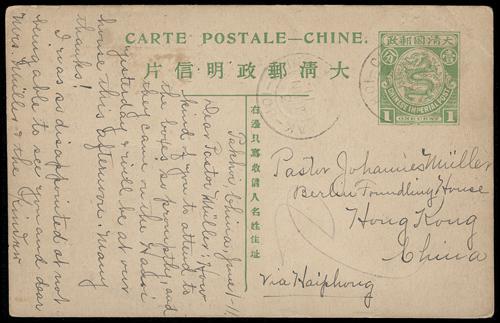 CARTE POSTALE—CHINE.
片信明政郵清大
大清國郵政
壹
分
CHINESE IMPERIAL POST
1 ONE CENT 1
PAKHOI
在邊只寫收信人名姓住址
Pakhoi, China, June 1-11
Dear Pastor Müller: How
kind of you to attend to
the boxes so promptly, and
they came on the
yesterday & will be at our
house this afternoon. Many
thanks!
I was so disappointed at not
being able to see you and dear
Mrs. Müller & the Kinder
Pastor Johannes Müller
Berlin Foundling House
Hong Kong
China
Via Haiphong